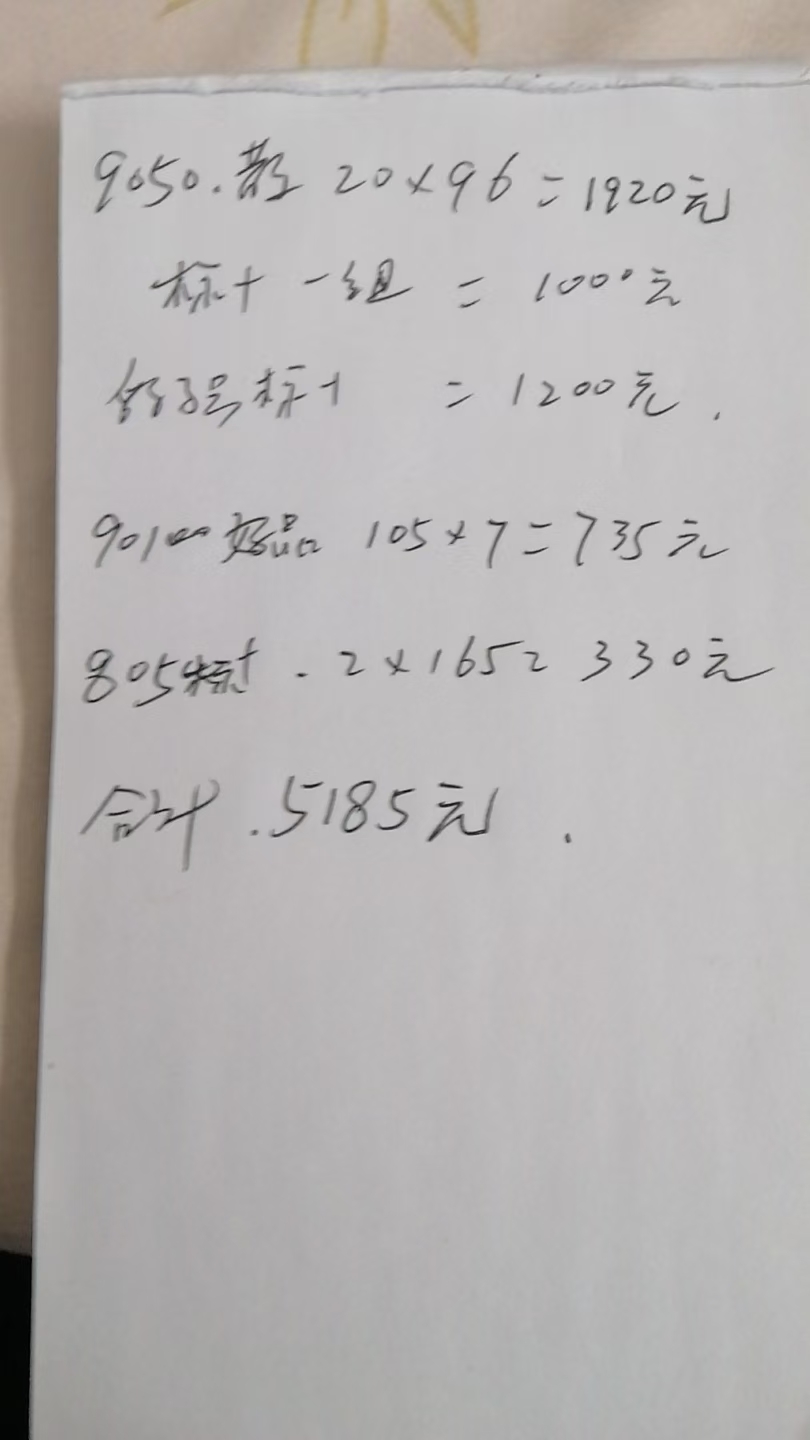 9050.散 20×96=1920元
标十一组 = 1000元
号标十 =1200元.
90100好品 105×7=735元
805标十.2×165=330元
合计.5185元.